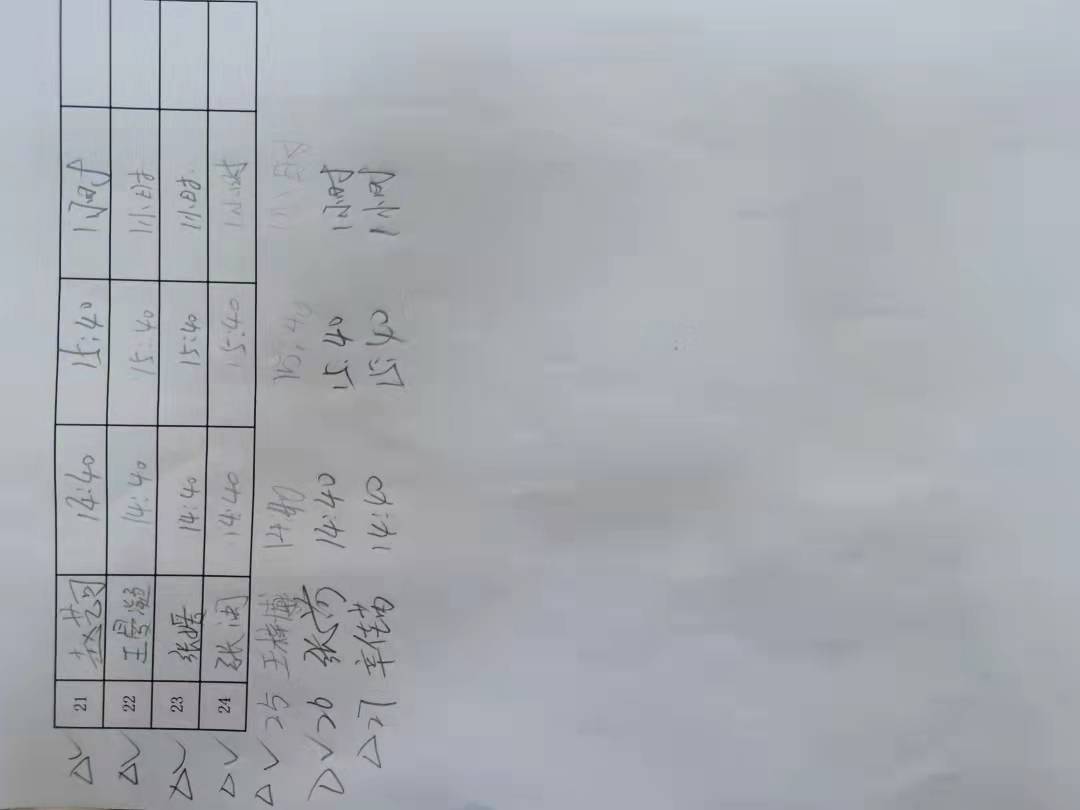 △✓ 21 赵艺 14:40 15:40 1小时
△✓ 22 王 14:40 15:40 1小时
△✓ 23 张婷 14:40 15:40 1小时
△✓ 24 张闻 14:40 15:40 1小时
△✓ 25 王梓博 14:40 15:40 1小时
△✓ 26 张 14:40 15:40 1小时
△ 27 辛佳茹 14:40 15:40 1小时